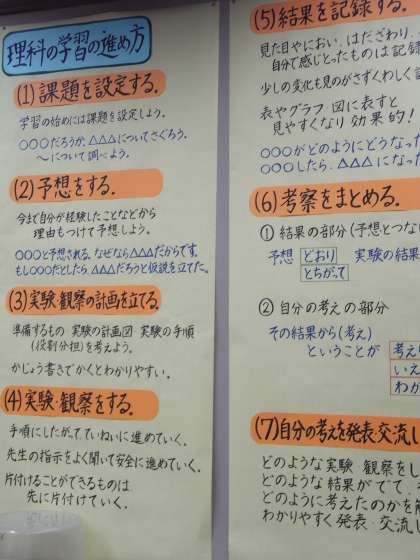 理科の学習の進め方
(1)課題を設定する.
学習の始めには課題を設定しよう.
○○○だろうか.△△△についてさぐろう.
〜について調べよう.
(2)予想をする.
今まで自分が経験したことなどから
理由もつけて予想しよう.
○○○と予想される.なぜなら△△△だからです.
もし○○○だとしたら,△△△だろうと仮説を立てた.
(3)実験・観察の計画を立てる.
準備するもの 実験の計画図 実験の手順
(役割分担)を考えよう.
かじょう書きでかくとわかりやすい.
(4)実験・観察をする.
手順にしたがってていねいに進めていく.
先生の指示をよく聞いて安全に進めていく.
片付けることができるものは
先に片付けていく.
(5)結果を記録する.
見た目やにおい,はだざわり,
自分で感じとったものは記録
少しの変化も見のがさずくわしく
表やグラフ 図に表すと
見やすくなり 効果的!
○○○がどのようにどうなった
○○○したら,△△△になった
(6)考察をまとめる.
① 結果の部分(予想とつな
予想 どおり 実験の結果
とちがって
② 自分の考えの部分
その結果から(考え)
ということが 考え
いえ
わか
(7)自分の考えを発表・交流し
どのような実験・観察をし
どのような結果がでて,
どのように考えたのかを
わかりやすく発表・交流し